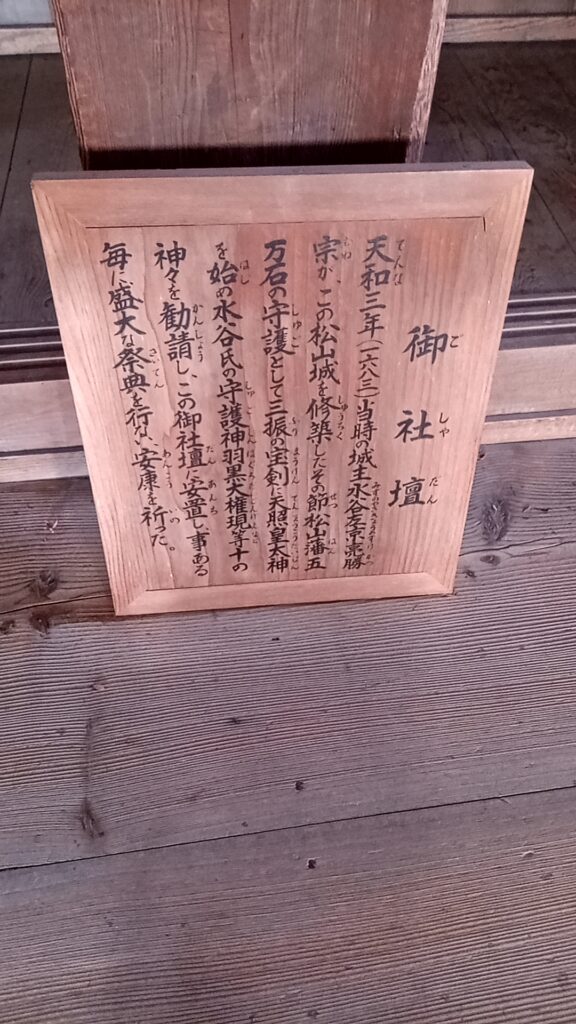 御社壇
天和三年(一六八三)当時の城主水谷左京亮勝
宗が、この松山城を修築したその節松山藩五
万石の守護として三振の宝剣に天照皇大神
を始め水谷氏の守護神羽黒大権現等十の
神々を勧請し、この御社壇に安置し事ある
毎に盛大な祭典を行ない安康を祈った。